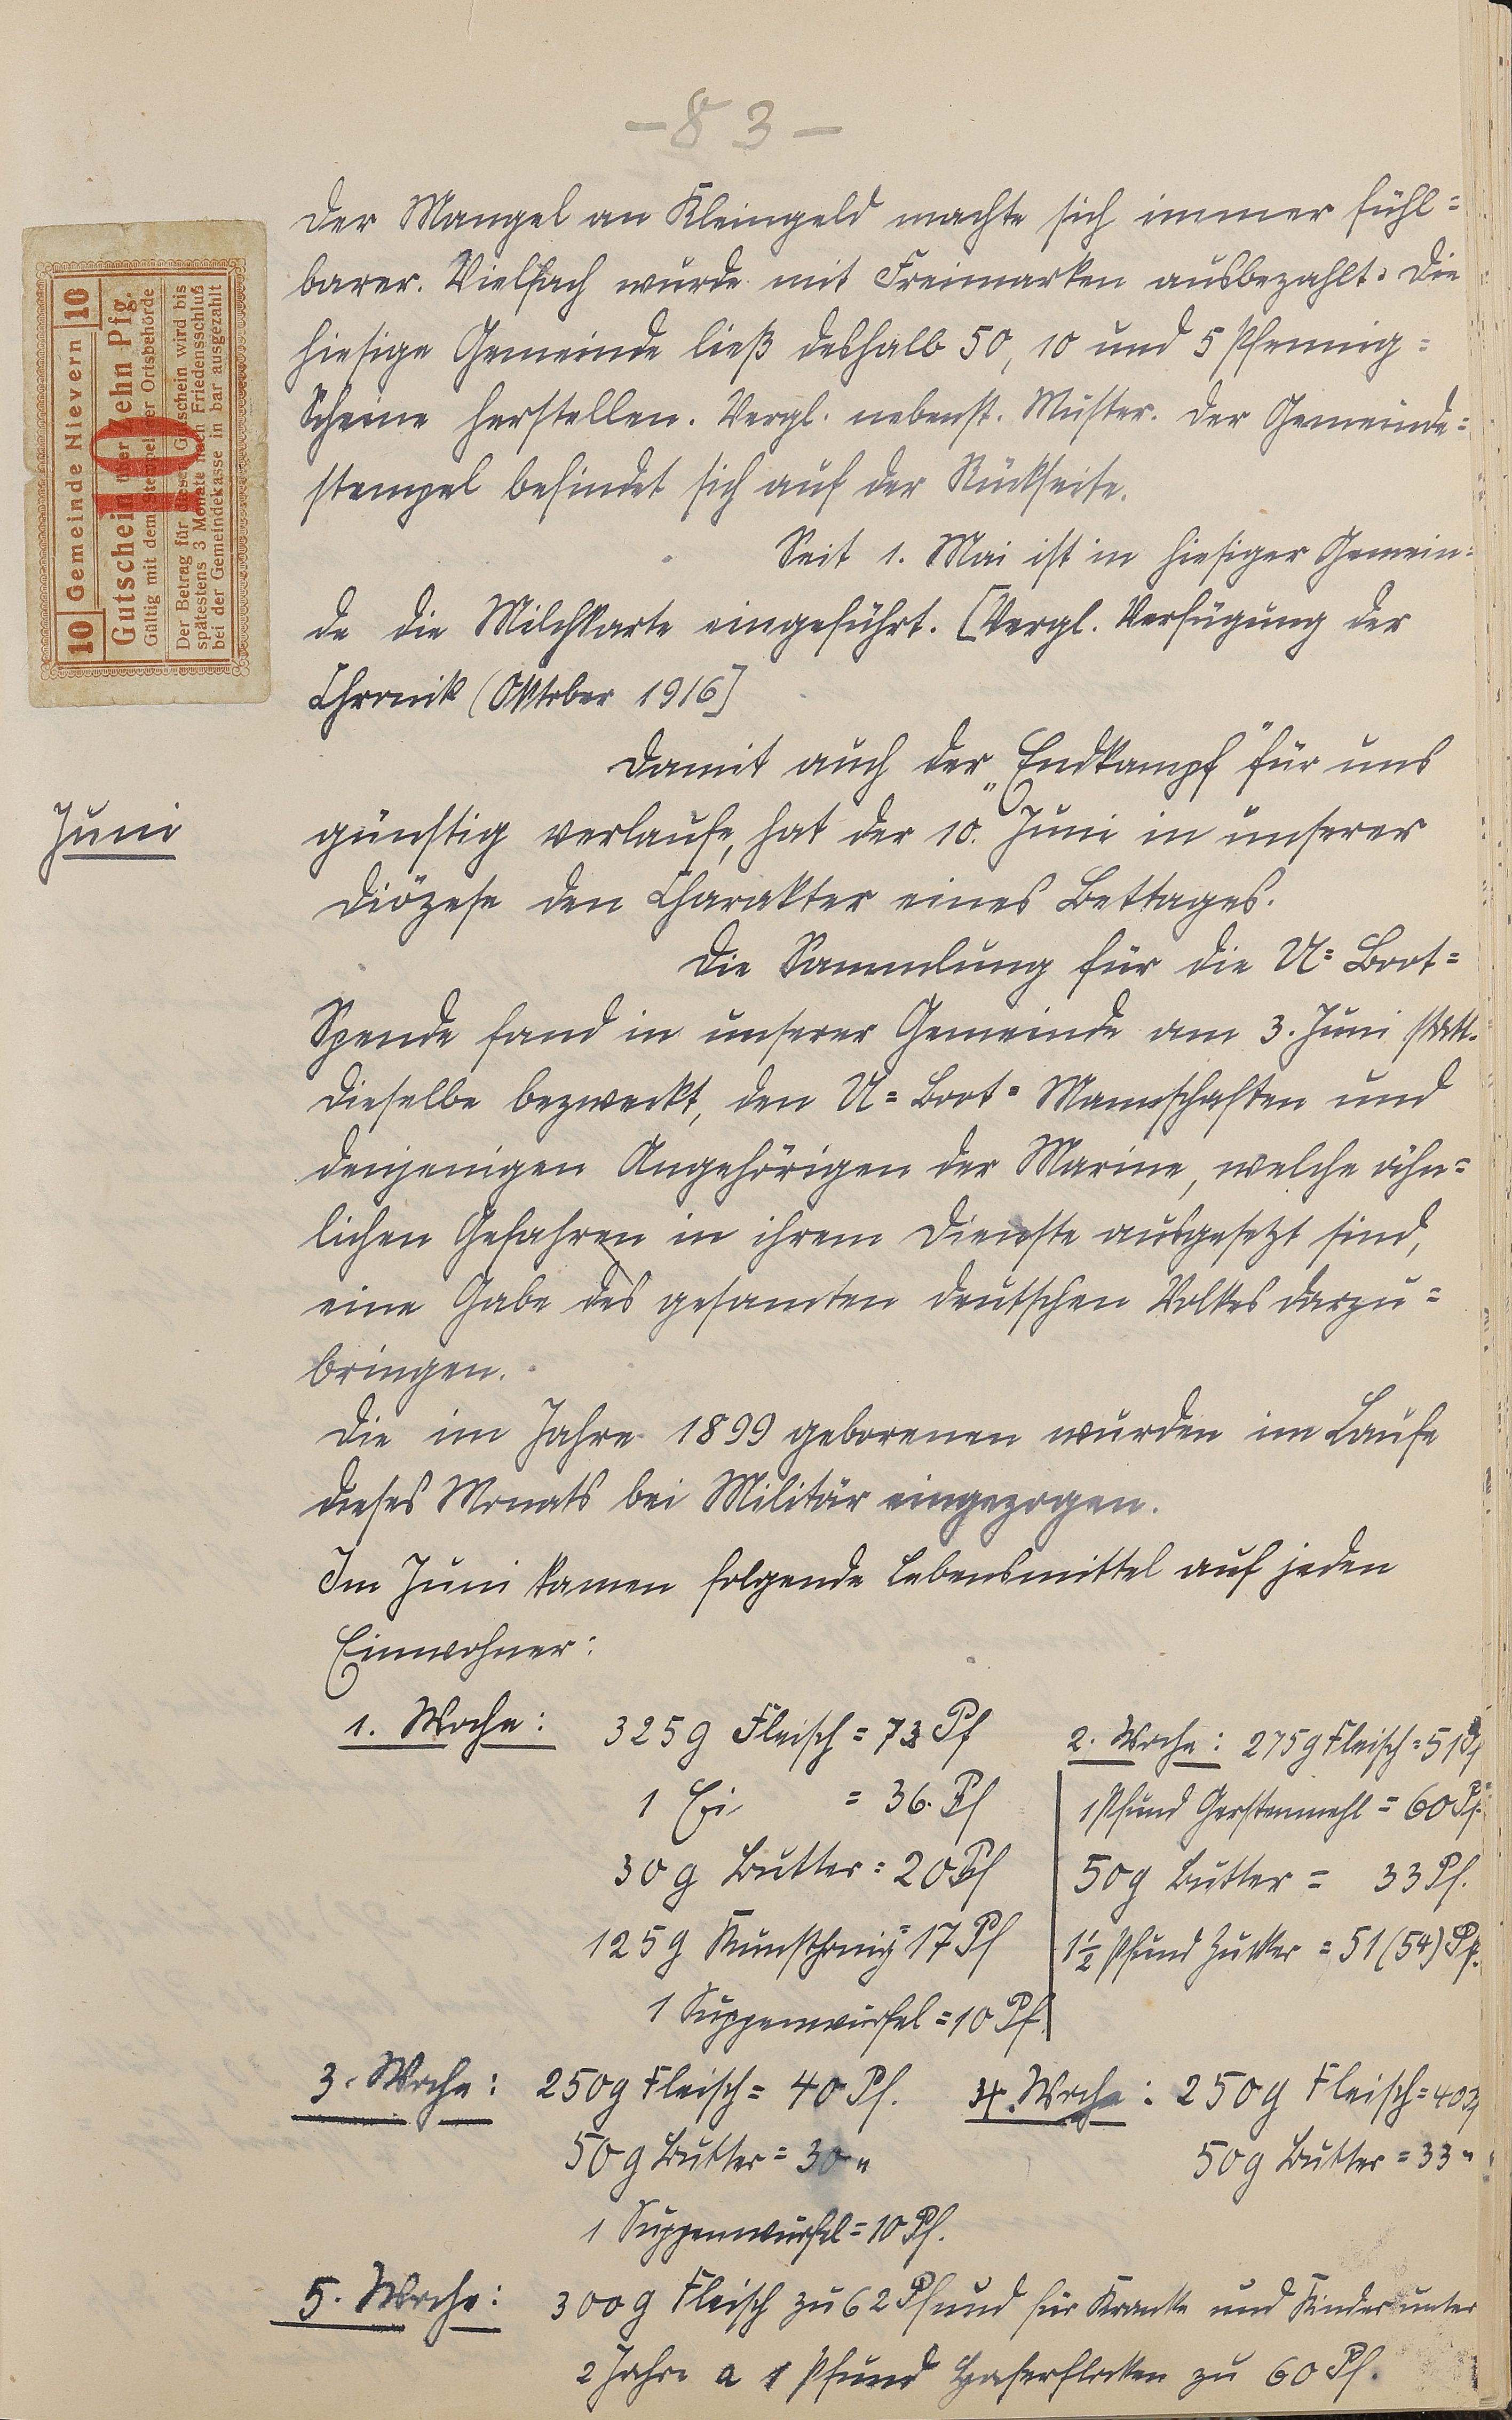 - 83 -
Der Mangel an Kleingeld machte sich immer fühl=
barer. Vielfach wurde mit Freimarken ausbezahlt. Die
hiesige Gemeinde ließ deshalb 50, 10 und 5 Pfennig=
Scheine herstellen. Vergl. nebenst. Muster. Der Gemeinde=
stempel befindet sich auf der Rückseite.
10 Gemeinde Nievern 10
Gutschein über Zehn Pfg.
10
Gültig mit dem Stempel der Ortsbehörde
Der Betrag für diesen Gutschein wird bis
spätestens 3 Monate nach Friedensschluß
bei der Gemeindekasse in bar ausgezahlt
Seit 1. Mai ist in hiesiger Gemein=
de die Milchkarte eingeführt. [Vergl. Verfügung der
Chronik (Oktober 1916]
Damit auch der „Endkampf" für uns
Juni
günstig verlaufe, hat der 10. Juni in unserer
Diözese den Charakter eines Bettages.
Die Sammlung für die U=Boot=
Spende fand in unserer Gemeinde am 3. Juni statt.
Dieselbe bezweckt, den U=Boot=Mannschaften und
denjenigen Angehörigen der Marine, welche ähn=
lichen Gefahren in ihrem Dienste ausgesetzt sind,
eine Gabe des gesamten deutschen Volkes darzu=
bringen.
Die im Jahre 1899 geborenen wurden im Laufe
dieses Monats bei Militär eingezogen.
Im Juni kamen folgende Lebensmittel auf jeden
Einwohner:
1. Woche: 325 g Fleisch = 73 Pf
1 Ei = 36 Pf
30 g Butter = 20 Pf
125 g Kunsthonig = 17 Pf
1 Suppenwürfel = 10 Pf.
2. Woche: 275 g Fleisch = 51 Pf
1 Pfund Gerstenmehl = 60 Pf.
50 g Butter = 33 Pf.
1½ Pfund Zucker = 51 (54) Pf.
3. Woche: 250 g Fleisch = 40 Pf.
50 g Butter = 30 "
1 Suppenwürfel = 10 Pf.
4. Woche: 250 g Fleisch = 40 Pf
50 g Butter = 33 "
5. Woche: 300 g Fleisch zu 62 Pf und für Kranke und Kinder unter
2 Jahre a 1 Pfund Haferflocken zu 60 Pf.